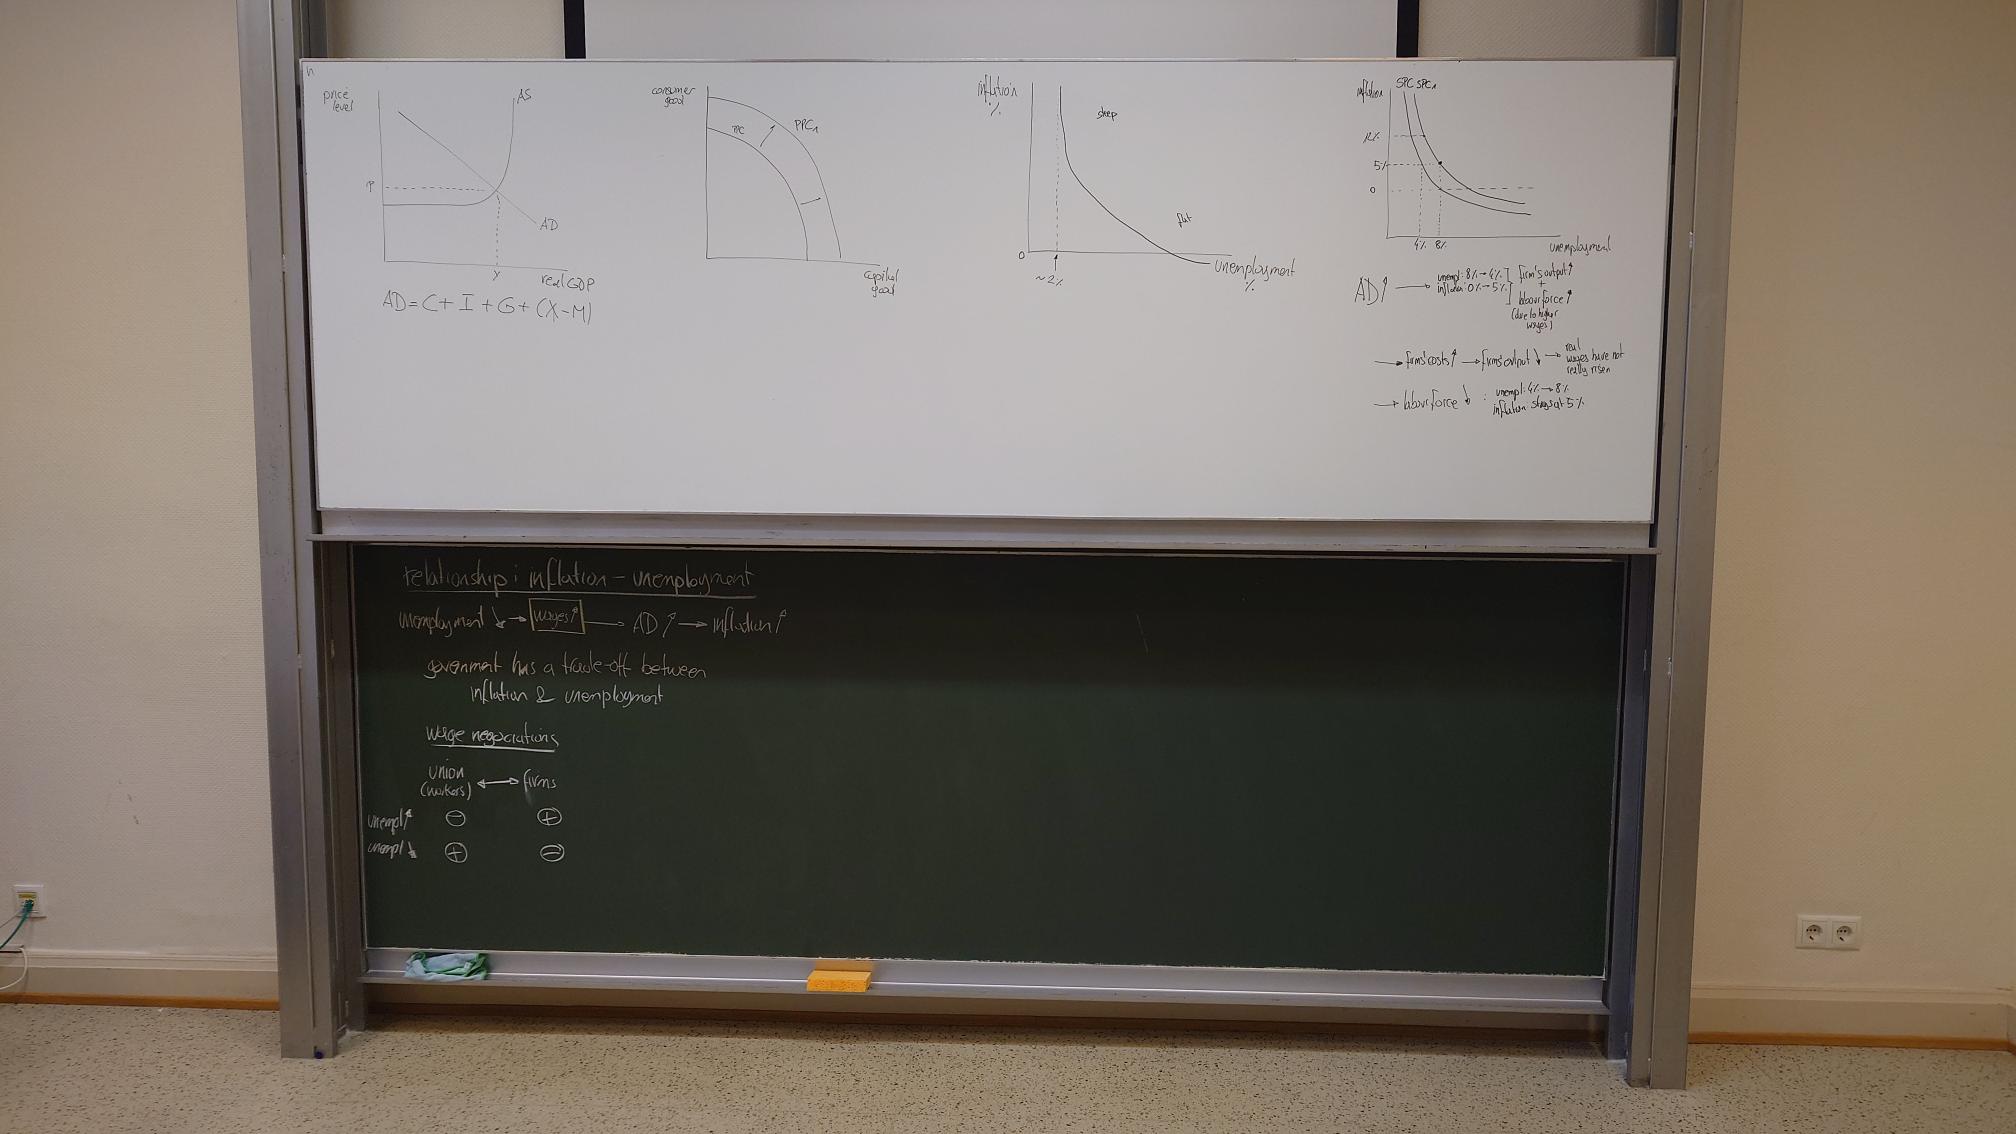 price
level
AS
P
AD
y
real GDP
AD = C + I + G + (X-M)
consumer
good
PPC
PPC₁
capital
good
inflation
%
steep
flat
0
~2%
unemployment
%
inflation
SPC SPC₁
12%
5%
0
4% 8%
unemployment
AD↑ → unempl: 8% → 4%
inflation: 0% → 5%
firm's output↑
+
labour force↑
(due to higher
wages)
→ firms' costs↑ → firms' output ↓ → real
wages have not
really risen
→ labour force ↓ : unempl: 4% → 8%
inflation: stays at 5%
relationship: inflation - unemployment
unemployment ↓ → wages↑ → AD↑ → inflation↑
government has a trade-off between
inflation & unemployment
wage negociations
union ↔ firms
(workers)
unempl↑ ⊖ ⊕
unempl↓ ⊕ ⊖